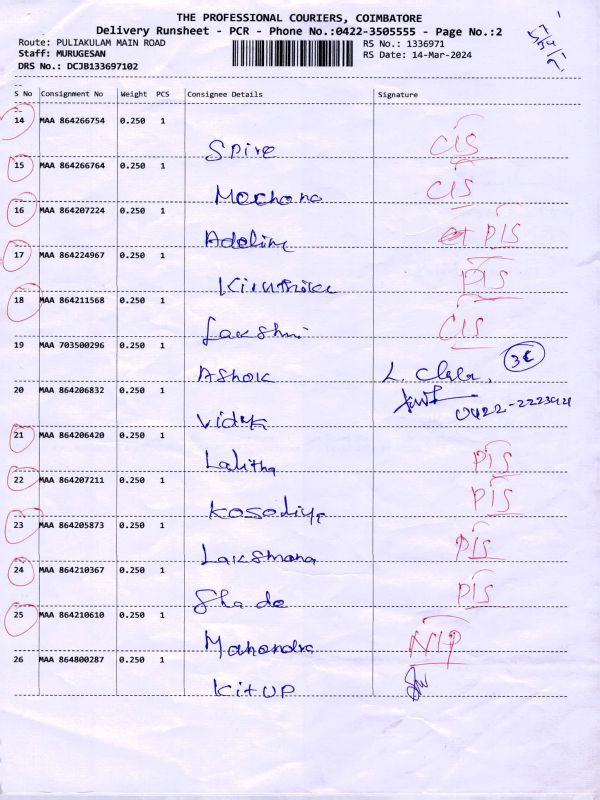 THE PROFESSIONAL COURIERS, COIMBATORE
Delivery Runsheet - PCR - Phone No.:0422-3505555 - Page No.:2
Route: PULIAKULAM MAIN ROAD RS No.: 1336971
Staff: MURUGESAN RS Date: 14-Mar-2024
DRS No.: DCJB133697102
S No Consignment No Weight PCS Consignee Details Signature
14 MAA 864266754 0.250 1
Spire CIS
15 MAA 864266764 0.250 1
Mochana CIS
16 MAA 864207224 0.250 1
Adeline PIS
17 MAA 864224967 0.250 1
Kiruthika PIS
18 MAA 864211568 0.250 1
Lakshmi CIS
19 MAA 703500296 0.250 1
Ashok
20 MAA 864206832 0.250 1
Vidya
21 MAA 864206420 0.250 1
Lalitha PIS
22 MAA 864207211 0.250 1
PIS
23 MAA 864205873 0.250 1
Lakshmana PIS
24 MAA 864210367 0.250 1
PIS
25 MAA 864210610 0.250 1
Mahendra NIP
26 MAA 864800287 0.250 1
Kitup